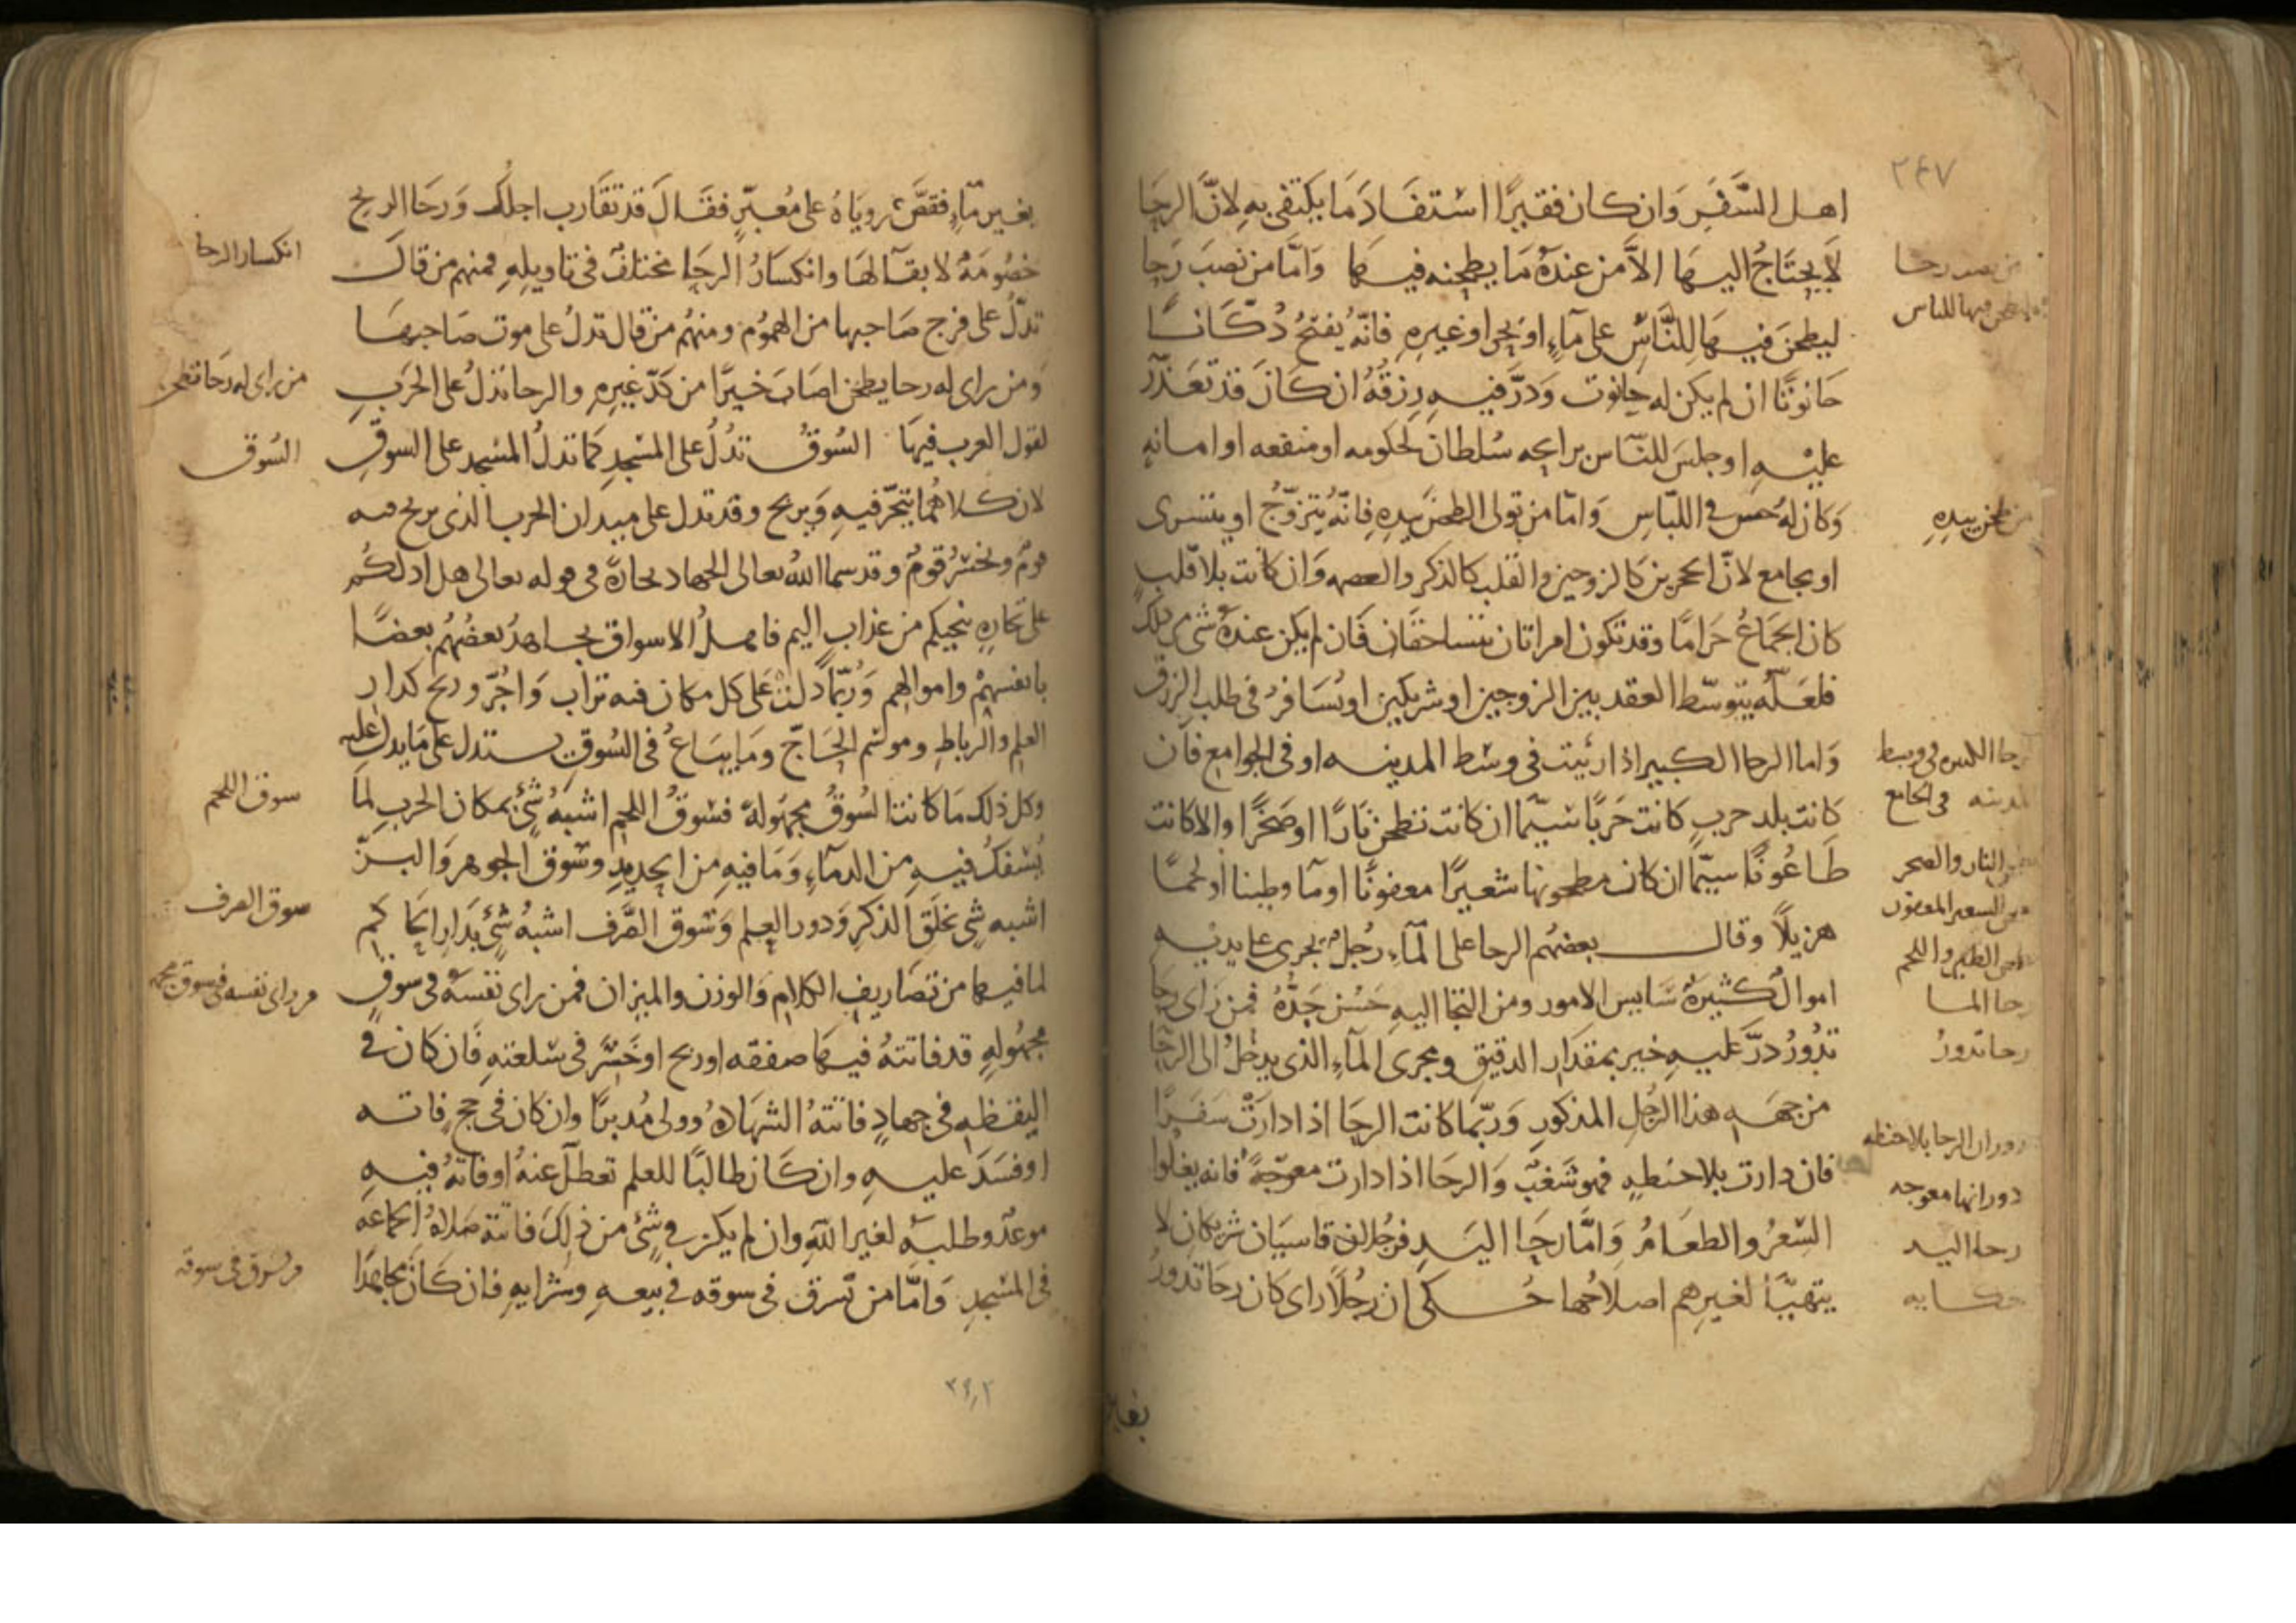 ٢٤٧
اهل السَّفَرِ وَان كان فقيرًا اسْتفَادَ مَا يكتفى بهِ لانَّ الرحَا
لَا يحتَاجُ اليهَا الاَّ من عندهُ مَا يطحنه فيهَا وَامَّا من نصبَ رَحا
ليطحنَ فيهَا لِلنَّاسِ على مآءٍ اوبحرا وغيرِهِ فانّهُ يُفتحُ دُكّانًا
حَانوتًا ان لم يكن له حانوت وَدرَّ فيهِ رِزقُهُ ان كَانَ قد تعَذَّر
عليْهِ اوجلسَ للنّاس برايحه سُلطان لحكومه اومنفعه اوامانه
وَكان لهُ حس فى اللبّاس وَامّا من تولى الطحن بيدِهِ فانّهُ يتزوّجُ او يتسرى
او يجامع لانّ الحجرين كالزوجين والقلب كالذكر والعصمه وَان كانت بلا قلبٍ
كان الجمَاعُ حَرامًا وقد تكون امراتان تتساحقان فَان لم يكن عندهُ شى من ذلك
فلعَلّهُ يتوسّط العقد بين الزوجين اوشريكين اويُسَافرُ فى طلب الرزق
وَاما الرحا الكبير اذا رئيت فى وسَط المدينه اوفى الجوامع فان
كانت بلد حربٍ كانت حَربًا سيّما ان كانت تطحن نارًا اوصَخرًا والا كانت
طاعُونًا سيّما ان كان مطحونها شعيرًا معفونًا اومآ وطينا اولحمًا
هزيلًا وقال بعضهُم الرحا على المآءِ رُجل يجرى على يديْه
اموالٌ كثيرهٌ سَايس الامور ومن التجا اليهِ حَسُن جَدُّهُ فمن رَاى رحَا
تدُورُ درَّ عَليهِ خير بمقدَار الدقيق ومجرى المآءِ الذى يدخلُ الى الرحَا
من جهَه هذا الرّجلِ المذكورِ وَربّما كانت الرحَا اذا دارَتْ سَفَرًا
فان دارت بلا حنطهٍ فهو شَغبٌ وَالرحَا اذا دارت معوجّهً فانه يغلوا
السّعرُ والطعَامُ وَامَّا رحَا اليَدِ فرجُلان قاسيَان شريكان لا
يتهيّأ لغيرهم اصلاحُها حُكى ان رجُلًا راى كان رحَا تدورُ
من نصب رحا
يطحن فيها للناس
من طحن بيدِهِ
رحا الكبير فى وسط
المدينه فى الجامع
طحن النار والصخر
طحن الشعير المعفون
طحن الطين واللحم
رحا الما
رحا تدورُ
دوران الرحا بلا حنطه
دورانها معوجه
رحا اليد
حكايه
بغير
بغير مآءٍ فقصَّ رويَاهُ على مُعبّرٍ فقَالَ قد تقَارب اجلُك وَرحَا الريح
خصُومَهٌ لا بقآ لهَا وانكسَارُ الرحَا مختلفٌ فى تاويلِهِ فمنهم من قال
تدّلُ على فرج صَاحبها من الهمُوم ومنهُم من قال تدلُ على موت صَاحبهَا
وَمن راى له رحا يطحن اصَابَ خيرًا من كدّ غيرِهِ والرحا تدلُ على الحَربِ
لقول العرب فيهَا السُوقُ تدُلُ على المسْجدِ كما تدلُ المسْجد على السوقِ
لان كلاهُمَا يتجّر فيهِ وَيربح وقد تدل على ميدان الحرب الذى يربح فيه
قومٌ ويخسَرُ قومٌ وقد سما اللهُ تعالى الجهاد تجارهً فى قوله تعالى هل ادلكُم
على تجارهٍ تنجيكم من عذابٍ اليم فاهلُ الاسواق يجاهدُ بعضُهُم بعضًا
بانفسهمْ واموالهم وَرُبّما دلت عَلى كل مكان فيه ثواب وَاجُرٌ وربح كدار
العلمِ والرباطِ وموسَم الحَاجّ ومَا يبَاعُ فى السُوقِ يستدل على مَا يدل عليه
وكل ذلك مَا كانت السُوقُ مجهُولهً فسُوقُ اللحم اشبَهُ شئٍ بمكان الحَربِ لمَا
يُسْفكُ فيهِ من الدمآءِ وَمَا فيهِ من الحديدِ وسُوق الجوهر وَالبزّ
اشبه شئٍ بحَلَقِ الذكرِ وَدور العلم وَسُوق الصَّرف اشبهُ شئٍ بدَار الحَاكم
لما فيهَا من تصَاريف الكلام وَالوزن والميزان فمن راى نفسَهُ فى سوقٍ
مجهُولهٍ قد فاتتهُ فيهَا صفقه اوربح اوخَسَّر فى سْلعتهِ فَان كان فى
اليقظهِ فى جهادٍ فاتتهُ الشهَادهُ وولى مُدبرًا وان كان فى حجٍ فاته
اوفسَدَ عليهِ وان كَان طالبًا للعلم تعطلَ عنهُ اوفاتهُ فيهِ
موعدٌ وطلبهِ لغير اللهِ وان لم يكن فى شئٍ من ذلكَ فاتتهُ صَلاهُ الجماعَه
فى المسْجدِ وَامّا من تسرق فى سوقه فى بيعهِ وشرايهِ فان كَان مجاهدًا
انكسار الرحا
من راى له رَحا تطحن
السُوق
سوق اللحم
سوق الصرف
من راى نفسه فى سوق مجهوله
من تسوق فى سوقه